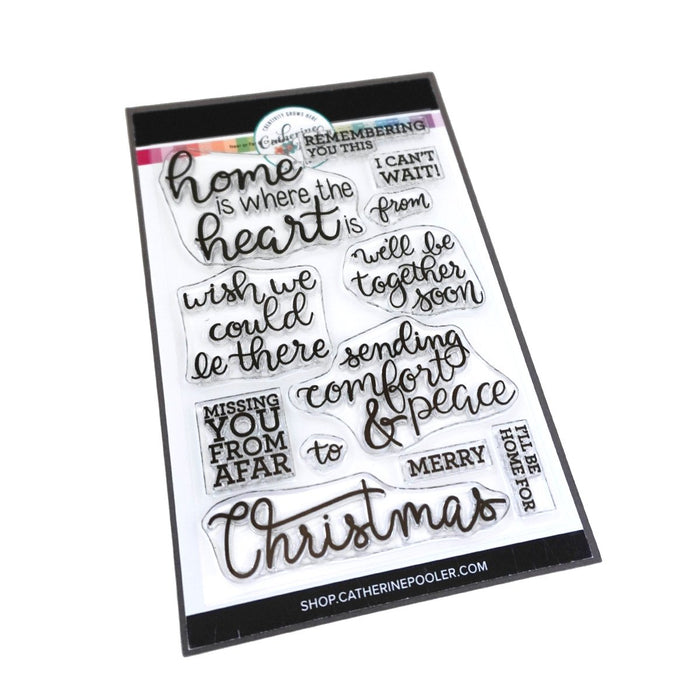 CREATIVITY GROWS HERE
Catherine
REMEMBERING
YOU THIS
home
is where the
heart is
I CAN'T
WAIT!
from
we'll be
together
soon
wish we
could
be there
sending
comfort
& peace
MISSING
YOU
FROM
AFAR
to
MERRY
I'LL BE
HOME FOR
Christmas
SHOP.CATHERINEPOOLER.COM